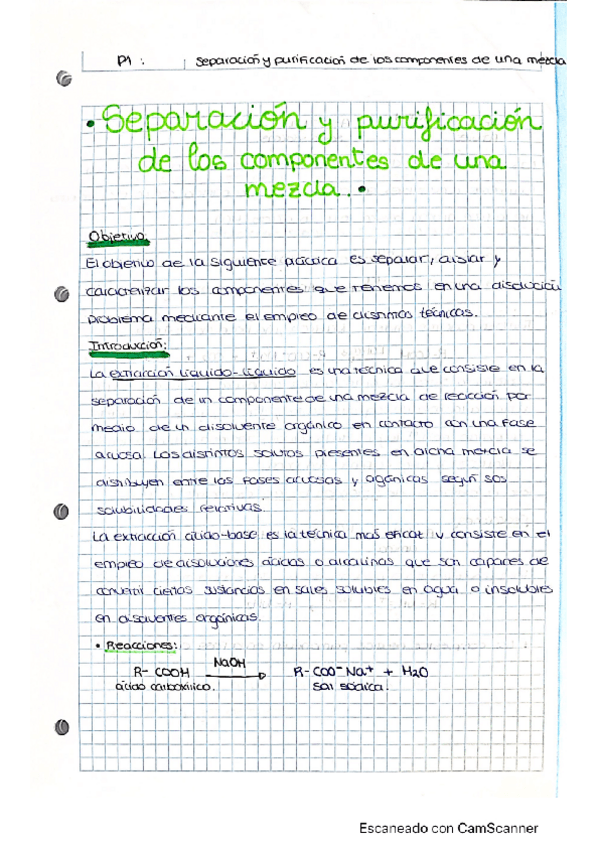 P1 : Separación y purificación de los componentes de una mezcla
• Separación y purificación
de los componentes de una
mezcla. •
Objetivo:
El objetivo de la siguiente práctica es separar, aislar y
caracterizar los componentes que tenemos en una disolución
problema mediante el empleo de distintas técnicas.
Introducción:
La extracción líquido-líquido es una técnica que consiste en la
separación de un componente de una mezcla de reacción por
medio de un disolvente orgánico en contacto con una fase
acuosa. Los distintos solutos presentes en dicha mezcla se
distribuyen entre las fases acuosas y orgánicas según sus
solubilidades relativas.
La extracción ácido-base es la técnica más eficaz y consiste en el
empleo de disoluciones ácidas o alcalinas que son capaces de
convertir ciertas sustancias en sales solubles en agua o insolubles
en disolventes orgánicos.
• Reacciones:
R-COOH NaOH → R-COO⁻Na⁺ + H2O
ácido carboxílico. sal sódica.
Escaneado con CamScanner